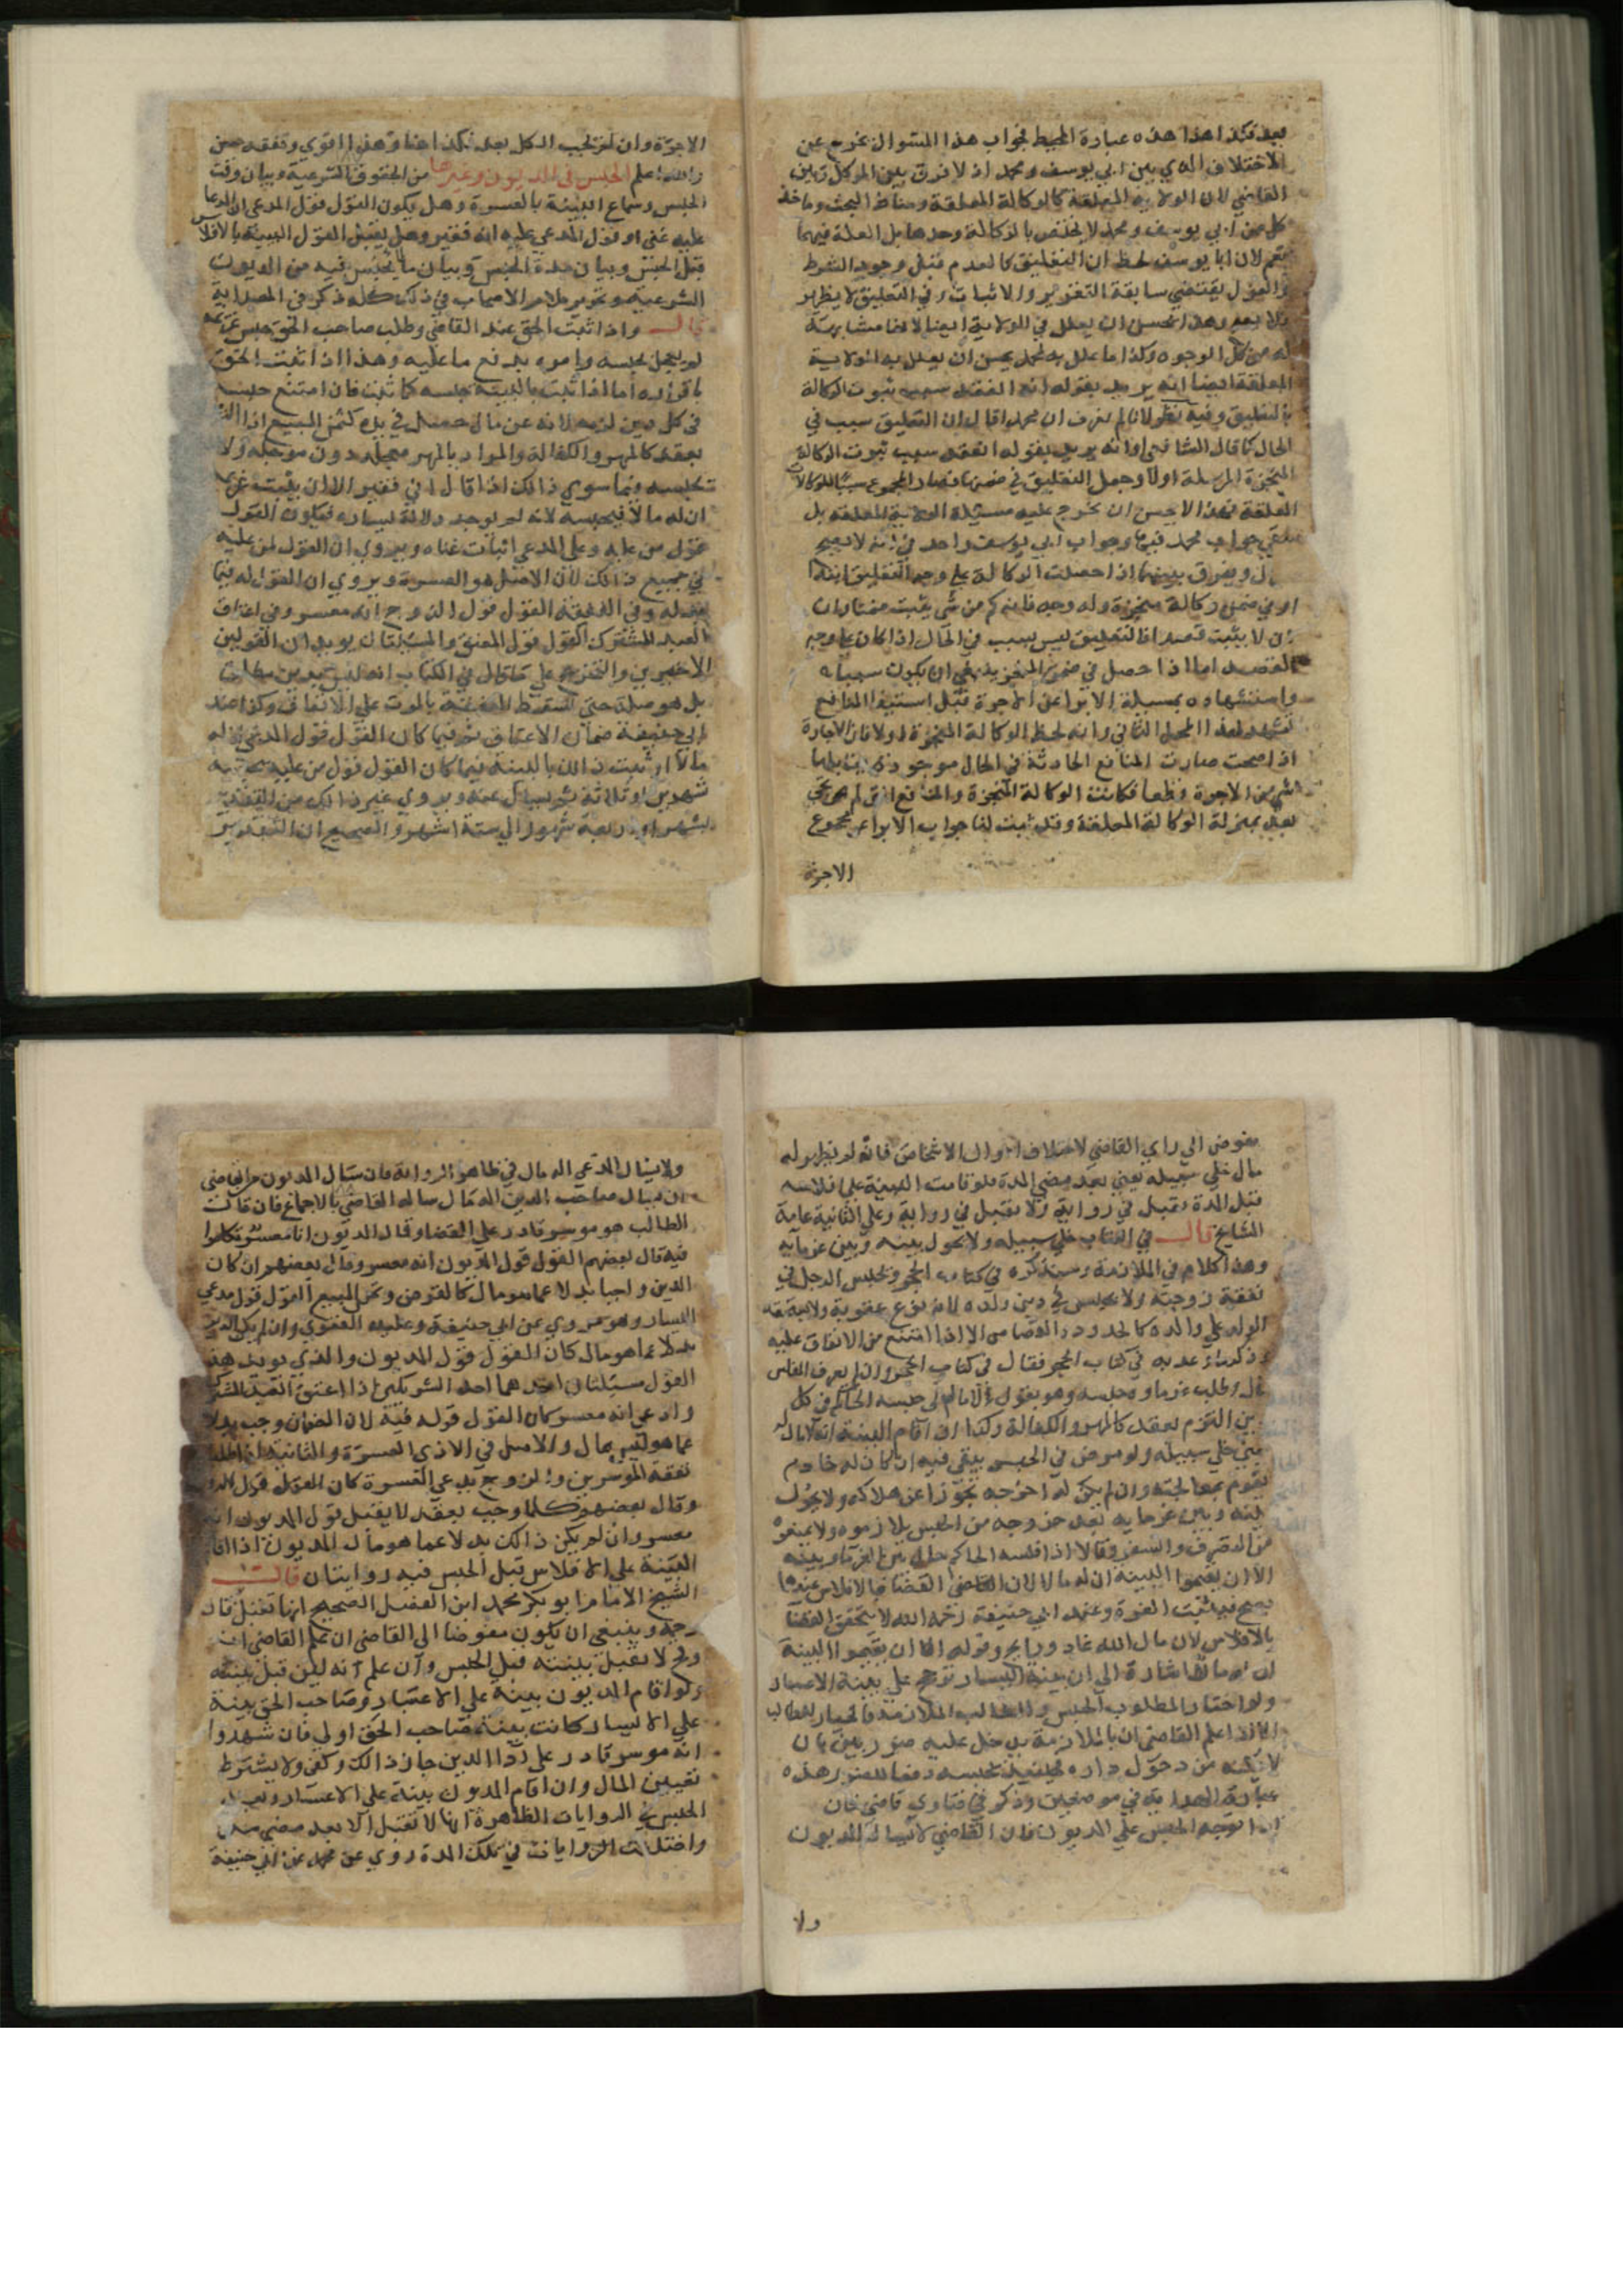 بعد فكذا هذا هذه عبارة المحيط فجواب هذا السوال يخرج عن
الاختلاف الذي بين ابي يوسف ومحمد اذ لا فرق بين الموكل وبين
القاضي لان الولاية المعلقة كالوكالة المعلقة ومناط البحث وماخذ
كل من ابي يوسف ومحمد لا يختص بالوكالة وحدها بل العلة فيهما
نعم لان ابا يوسف لحظ ان التعليق كالعدم قبل وجود الشرط
والعزل يقتضي سابقة التقرير والاثبات وفي التعليق لا يظهر
يحسن ان يعلل في الولاية ايضا لانها مشابهة
له من كل الوجوه وكذا ما علل به محمد يحسن ان يعلل به الولاية
المعلقة ايضا انه يريد بقوله انه انعقد سبب ثبوت الوكالة
بالتعليق وفيه نظر لانا لم نعرف ان محمدا قال ان التعليق سبب في
الحال كما قال الشافعي او انه يريد بقوله انعقد سبب ثبوت الوكالة
المنجزة المرسلة اولا وجعل التعليق في ضمنها فصار المجموع سببا للوكالات
المعلقة فهذا لا يحسن ان يخرج عليه مسئلة الولاية المعلقة بل
جواب محمد فيها وجواب ابي يوسف واحد في انه لا يصح
ويفرق بينهما اذا حصلت الوكالة على وجه التعليق ابتداء
او في ضمن وكالة منجزة وله وجه فانه كم من شي يثبت ضمنا وان
لا يثبت قصدا فالتعليق ليس بسبب في الحال اذا كان على وجه
القصد اما اذا حصل في ضمن المنجز ينبغي ان يكون سببا له
واستشهاده بمسئلة الابرا عن الاجرة قبل استيفا المنافع
يشهد لهذا المحمل الثاني وانه لحظ الوكالة المنجزة اولا فان الاجارة
اذا صحت صارت المنافع الحادثة في الحال موجودة
من الاجرة فكانت الوكالة المنجزة والمنافع التي لم تجئ
بعد بمنزلة الوكالة المعلقة وقد ثبت لنا جواب الابرا عن مجموع
الاجرة
الاجرة وان لم تجب الكل بعد فكذا هنا وهذا اقوي وتفقه حسن
والله اعلم الحبس في المديون وغيرها من الحقوق الشرعية وبيان وقت
الحبس وسماع البينة بالعسرة وهل يكون القول قول المدعي ان المدعا
عليه غني او قول المدعي عليه انه فقير وهل يقبل القول البينة بالافلاس
قبل الحبس وبيان مدة الحبس وبيان ما يحبس فيه من الديون
الشرعية وتحرير كلام الاصحاب في ذلك كله ذكر في الهداية
قال واذا ثبت الحق عند القاضي وطلب صاحب الحق حبس غريمه
لم يعجل بحبسه وامره بدفع ما عليه وهذا اذا ثبت الحق
باقراره اما اذا ثبت بالبينة حبسه كما ثبت فان امتنع حبسه
في كل دين لزمه بدلا عن مال حصل في يده كثمن المبيع او التزمه
بعقد كالمهر والكفالة والمراد بالمهر معجله دون موجله ولا
يحبسه فيما سوي ذالك اذا قال اني فقير الا ان يثبت غريمه
ان له مالا فيحبسه لانه لم يوجد دلالة ليساره فيكون القول
قول من عليه وعلى المدعي اثبات غناه ويروي ان القول لمن عليه
في جميع ذالك لان الاصل هو العسرة ويروي ان القول له فيما
بدله وفي النفقة القول قول الزوج انه معسر وفي اعتاق
العبد المشترك القول قول المعتق والمسئلتان يويدان القولين
الاخيرين والتخريج على ما قال في الكتاب انه ليس بدين مطلق
بل هو صلة حتى تسقط النفقة بالموت على الاتفاق وكذا عند
ابي حنيفة ضمان الاعتاق ثم فيما كان القول قول المدعي ان له
مالا او ثبت ذالك بالبينة فيما كان القول قول من عليه يحبسه
شهرين او ثلاثة ثم يسال عنه ويروي غير ذالك من التقدير
بشهر او اربعة شهور الي ستة اشهر والصحيح ان التقدير
مفوض الي راي القاضي لاختلاف احوال الاشخاص فانه لم يظهر له
مال خلي سبيله يعني بعد مضي المدة ولو قامت البينة على افلاسه
قبل المدة تقبل في رواية ولا تقبل في رواية وعلى الثانية عامة
المشايخ قال في الكتاب خلي سبيله ولا يحول بينه وبين غرمايه
وهذا كلام في الملازمة وسنذكره في كتاب الحجر ويحبس الرجل في
نفقة زوجته ولا يحبس في دين ولده لانه نوع عقوبة ولا يستحقه
الولد على والده كالحدود والقصاص الا اذا امتنع من الانفاق عليه
في كتاب الحجر فقال في كتاب الحجر وان لم يعرف للمفلس
مال وطلب غرماوه حبسه وهو يقول لا مال لي حبسه الحاكم في كل
دين التزم بعقد كالمهر والكفالة وكذا ان اقام البينة انه لا مال له
يعني خلي سبيله ولو مرض في الحبس يبقي فيه ان كان له خادم
يقوم بمعالجته وان لم يكن له اخرجه تحرزا عن هلاكه ولا يحول
بينه وبين غرمايه بعد خروجه من الحبس يلازموه ولا يمنعوه
من التصرف والسفر وقالا اذا فلسه الحاكم حال بين الغرما وبينه
الا ان يقيموا البينة ان له مالا لان القضا بالافلاس عندهما
يصح فيثبت العسرة وعند ابي حنيفة رحمه الله لا يتحقق القضا
بالافلاس لان مال الله غاد ورايح وقوله الا ان يقيموا البينة
ان له مالا اشارة الي ان بينة اليسار ترجح على بينة الاعسار
ولو اختار المطلوب الحبس والطالب الملازمة فالخيار للطالب
الا اذا علم القاضي ان بالملازمة يدخل عليه ضرر بين بان
لا يمكنه من دخول داره فحينئذ يحبسه دفعا للضرر هذه
عبارة الهداية في موضعين وذكر في فتاوي قاضي خان
اذا توجه الحبس على المديون فان القاضي لا يسال المديون
ولا
ولا يسال المدعي اله مال في ظاهر الرواية فان سال المديون من القاضي
ان يسال صاحب الدين اله مال ساله القاضي بالاجماع فان قالت
الطالب هو موسر قادر على القضا وقال المديون انا معسر تكلموا
فيه قال بعضهم القول قول المديون انه معسر وقال بعضهم ان كان
الدين واجبا بدلا عما هو مال كالقرض وثمن المبيع القول قول مدعي
اليسار وهو مروي عن ابي حنيفة وعليه الفتوي وان لم يكن الدين
بدلا عما هو مال كان القول قول المديون والذي يويد هذا
القول مسئلتان احدهما احد الشريكين اذا اعتق العبد المشترك
وادعي انه معسر كان القول قوله فيه لان الضمان وجب بدلا
عما هو ليس بمال والاصل في الادمي العسرة والثانية
نفقة الموسرين والزوج يدعي العسرة كان القول قول الزوج
وقال بعضهم كلما وجب بعقد لا يقبل قول المديون انه
معسر وان لم يكن ذالك بدلا عما هو مال المديون اذا اقام
البينة على الافلاس قبل الحبس فيه روايتان قال
الشيخ الامام ابو بكر محمد ابن الفضل الصحيح انها تقبل قال
رحمه وينبغي ان يكون مفوضا الي القاضي ان علم القاضي انه
وقح لا تقبل بينته قبل الحبس وان علم انه لين قبل بينته
ولو اقام المديون بينة على الاعسار وصاحب الحق بينة
على اليسار كانت بينة صاحب الحق اولي فان شهدوا
انه موسر قادر على ادا الدين جاز ذالك وكفى ولا يشترط
تعيين المال وان اقام المديون بينة على الاعسار بعد
الحبس في الروايات الظاهرة انها لا تقبل الا بعد مضي مدة
واختلفت الروايات في تلك المدة روي عن محمد عن ابي حنيفة